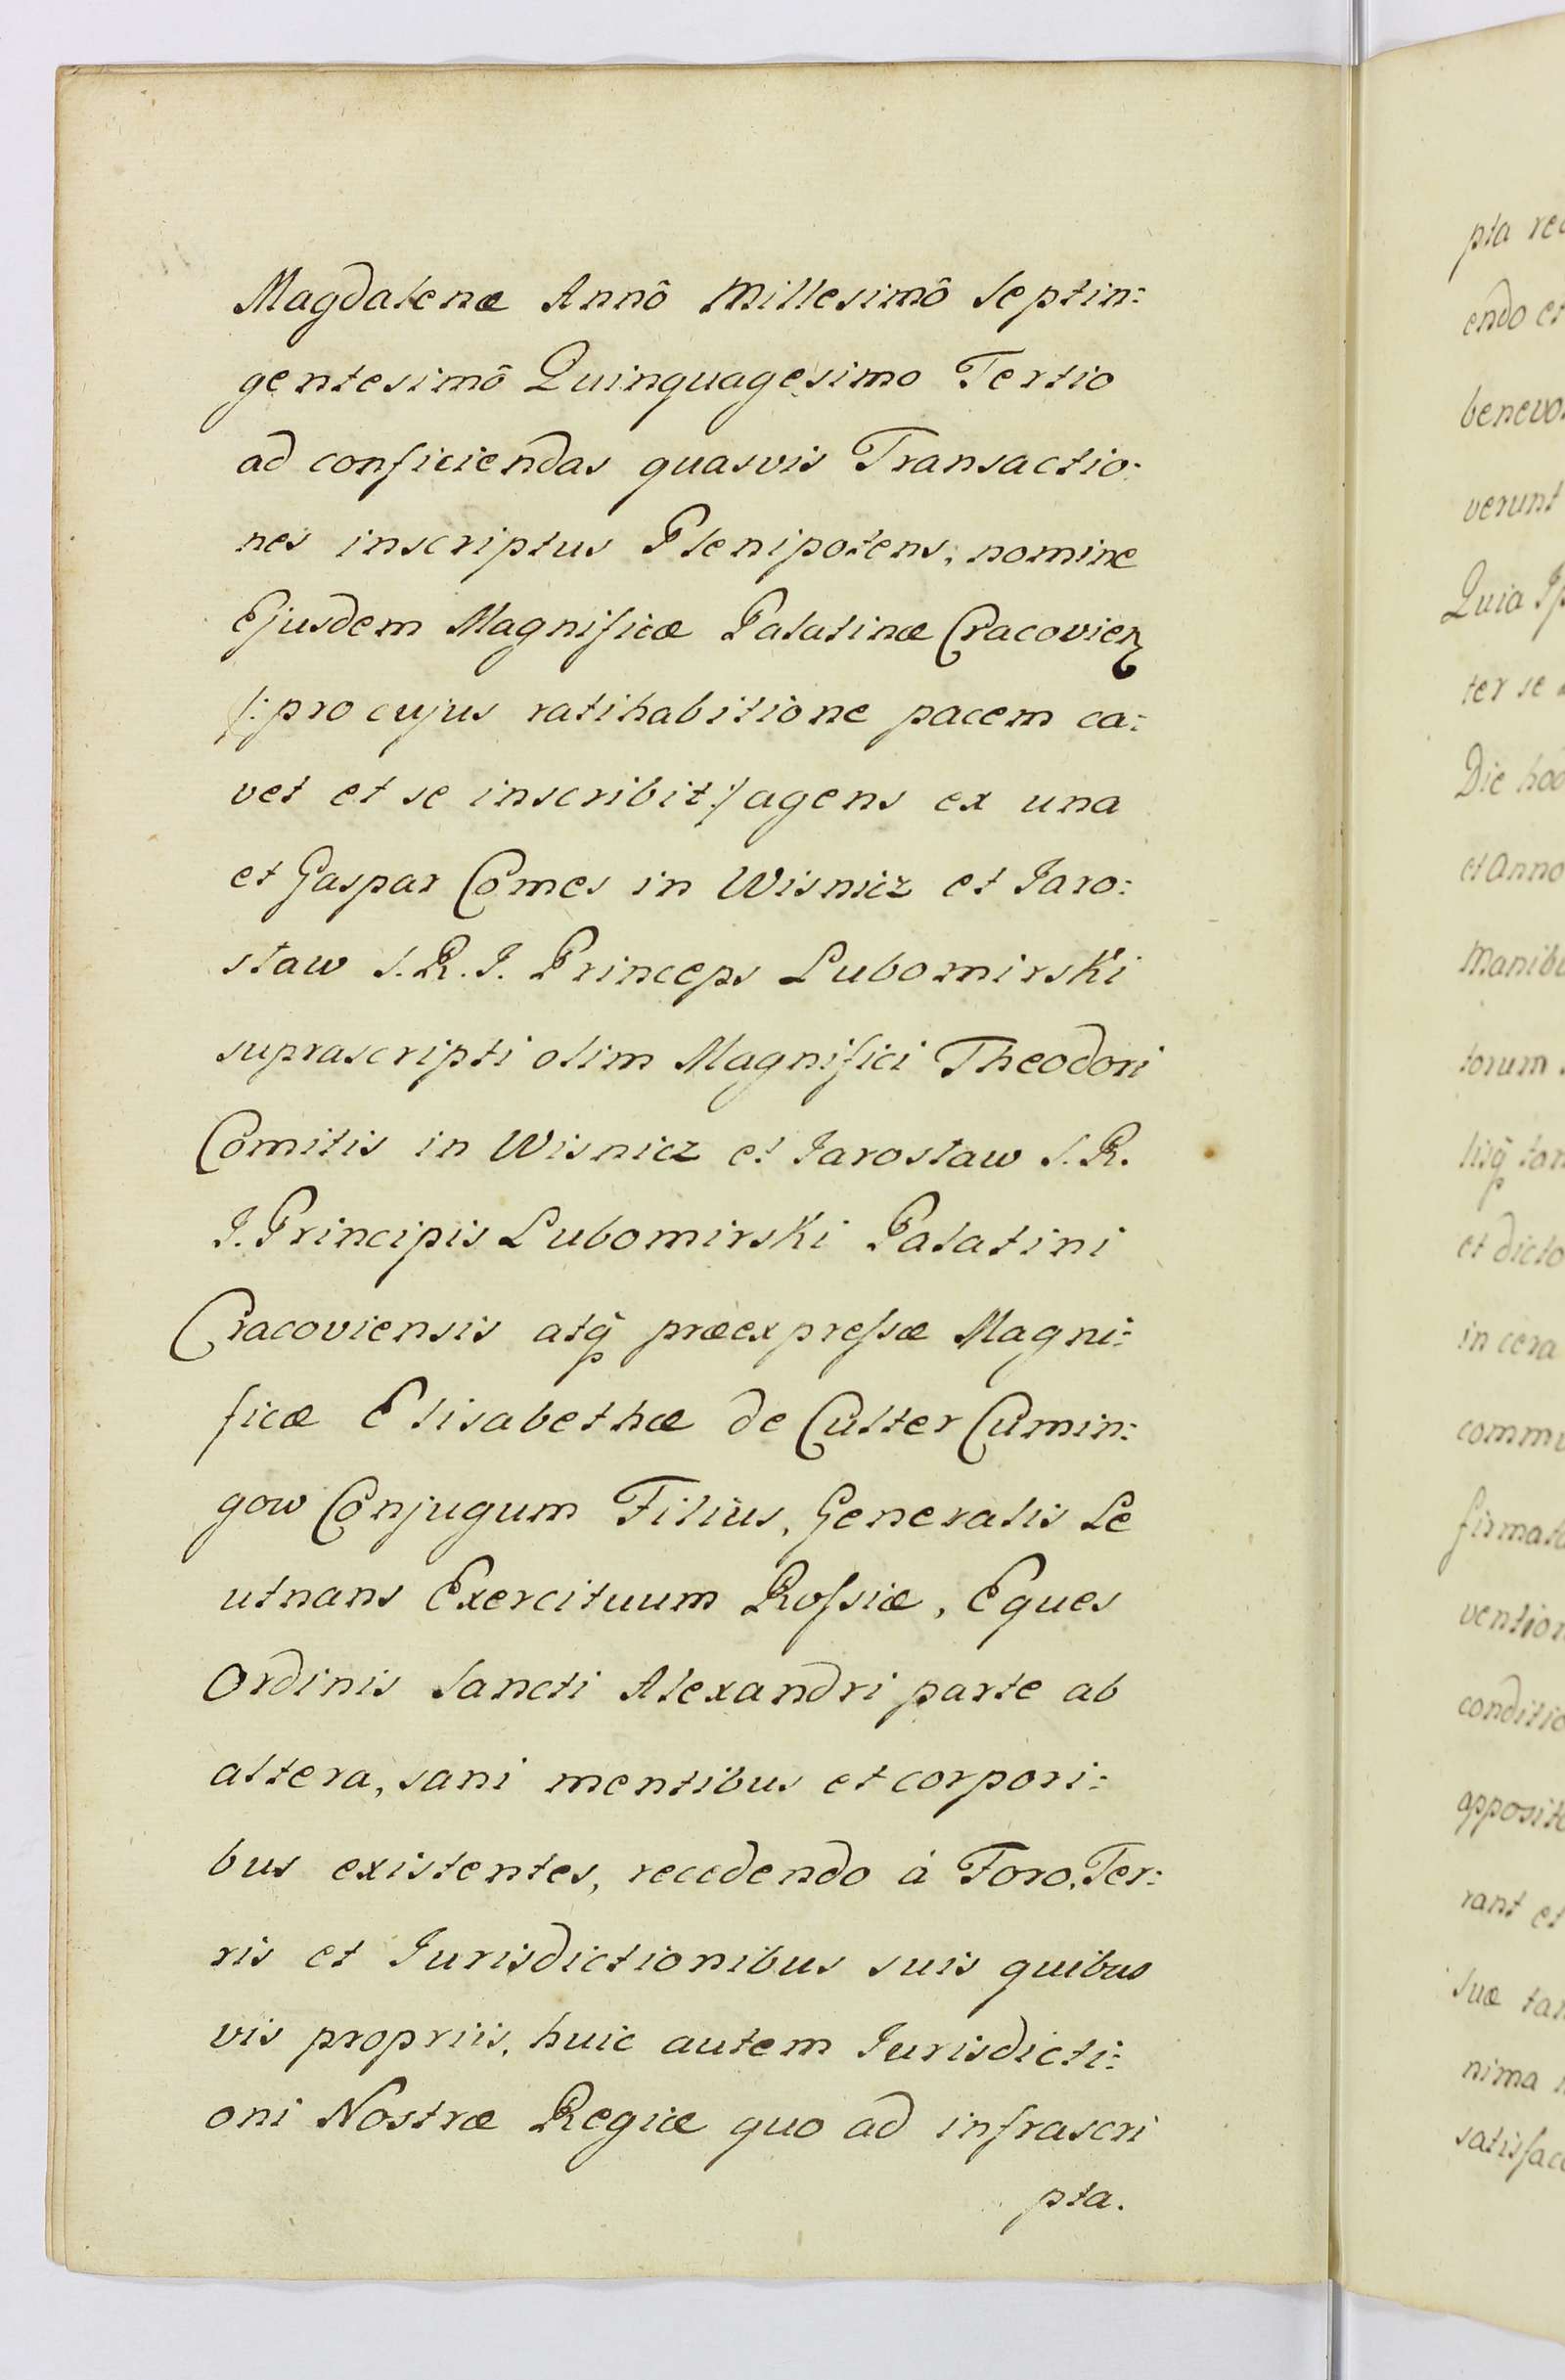 Magdalenæ Annô Millesimô Septin:
gentesimô Quinquagesimo Tertio
ad conficiendas quasvis Transactio:
nes inscriptus Plenipotens, nomine
Ejusdem Magnificæ Palatinæ Cracovien
/: pro cujus ratihabitione pacem ca:
vet et se inscribit :/ agens ex una
et Gaspar Comes in Wisnicz et Jaro:
slaw S. R. J. Princeps Lubomirski
suprascripti olim Magnifici Theodori
Comitis in Wisnicz et Jaroslaw S. R.
J. Principis Lubomirski Palatini
Cracoviensis atq̃ præexpreſsæ Magni:
ficæ Elisabethæ de Culter Cumin:
gow Conjugum Filius, Generalis Le
utnans Exercituum Roſsiæ, Eques
Ordinis Sancti Alexandri parte ab
altera, sani mentibus et corpori:
bus existentes, recedendo à Foro, Ter:
ris et Jurisdictionibus suis quibus
vis propriis, huic autem Jurisdicti:
oni Nostræ Regiæ quo ad infrascri
pta.
pta
endo
benevo
verunt
Quia
ter se
Die
et Anno
manib
torum
lisq̃
et dicto
in cera
comm
firmat
vention
conditio
opposit
rant et
suæ
nima
satisfac